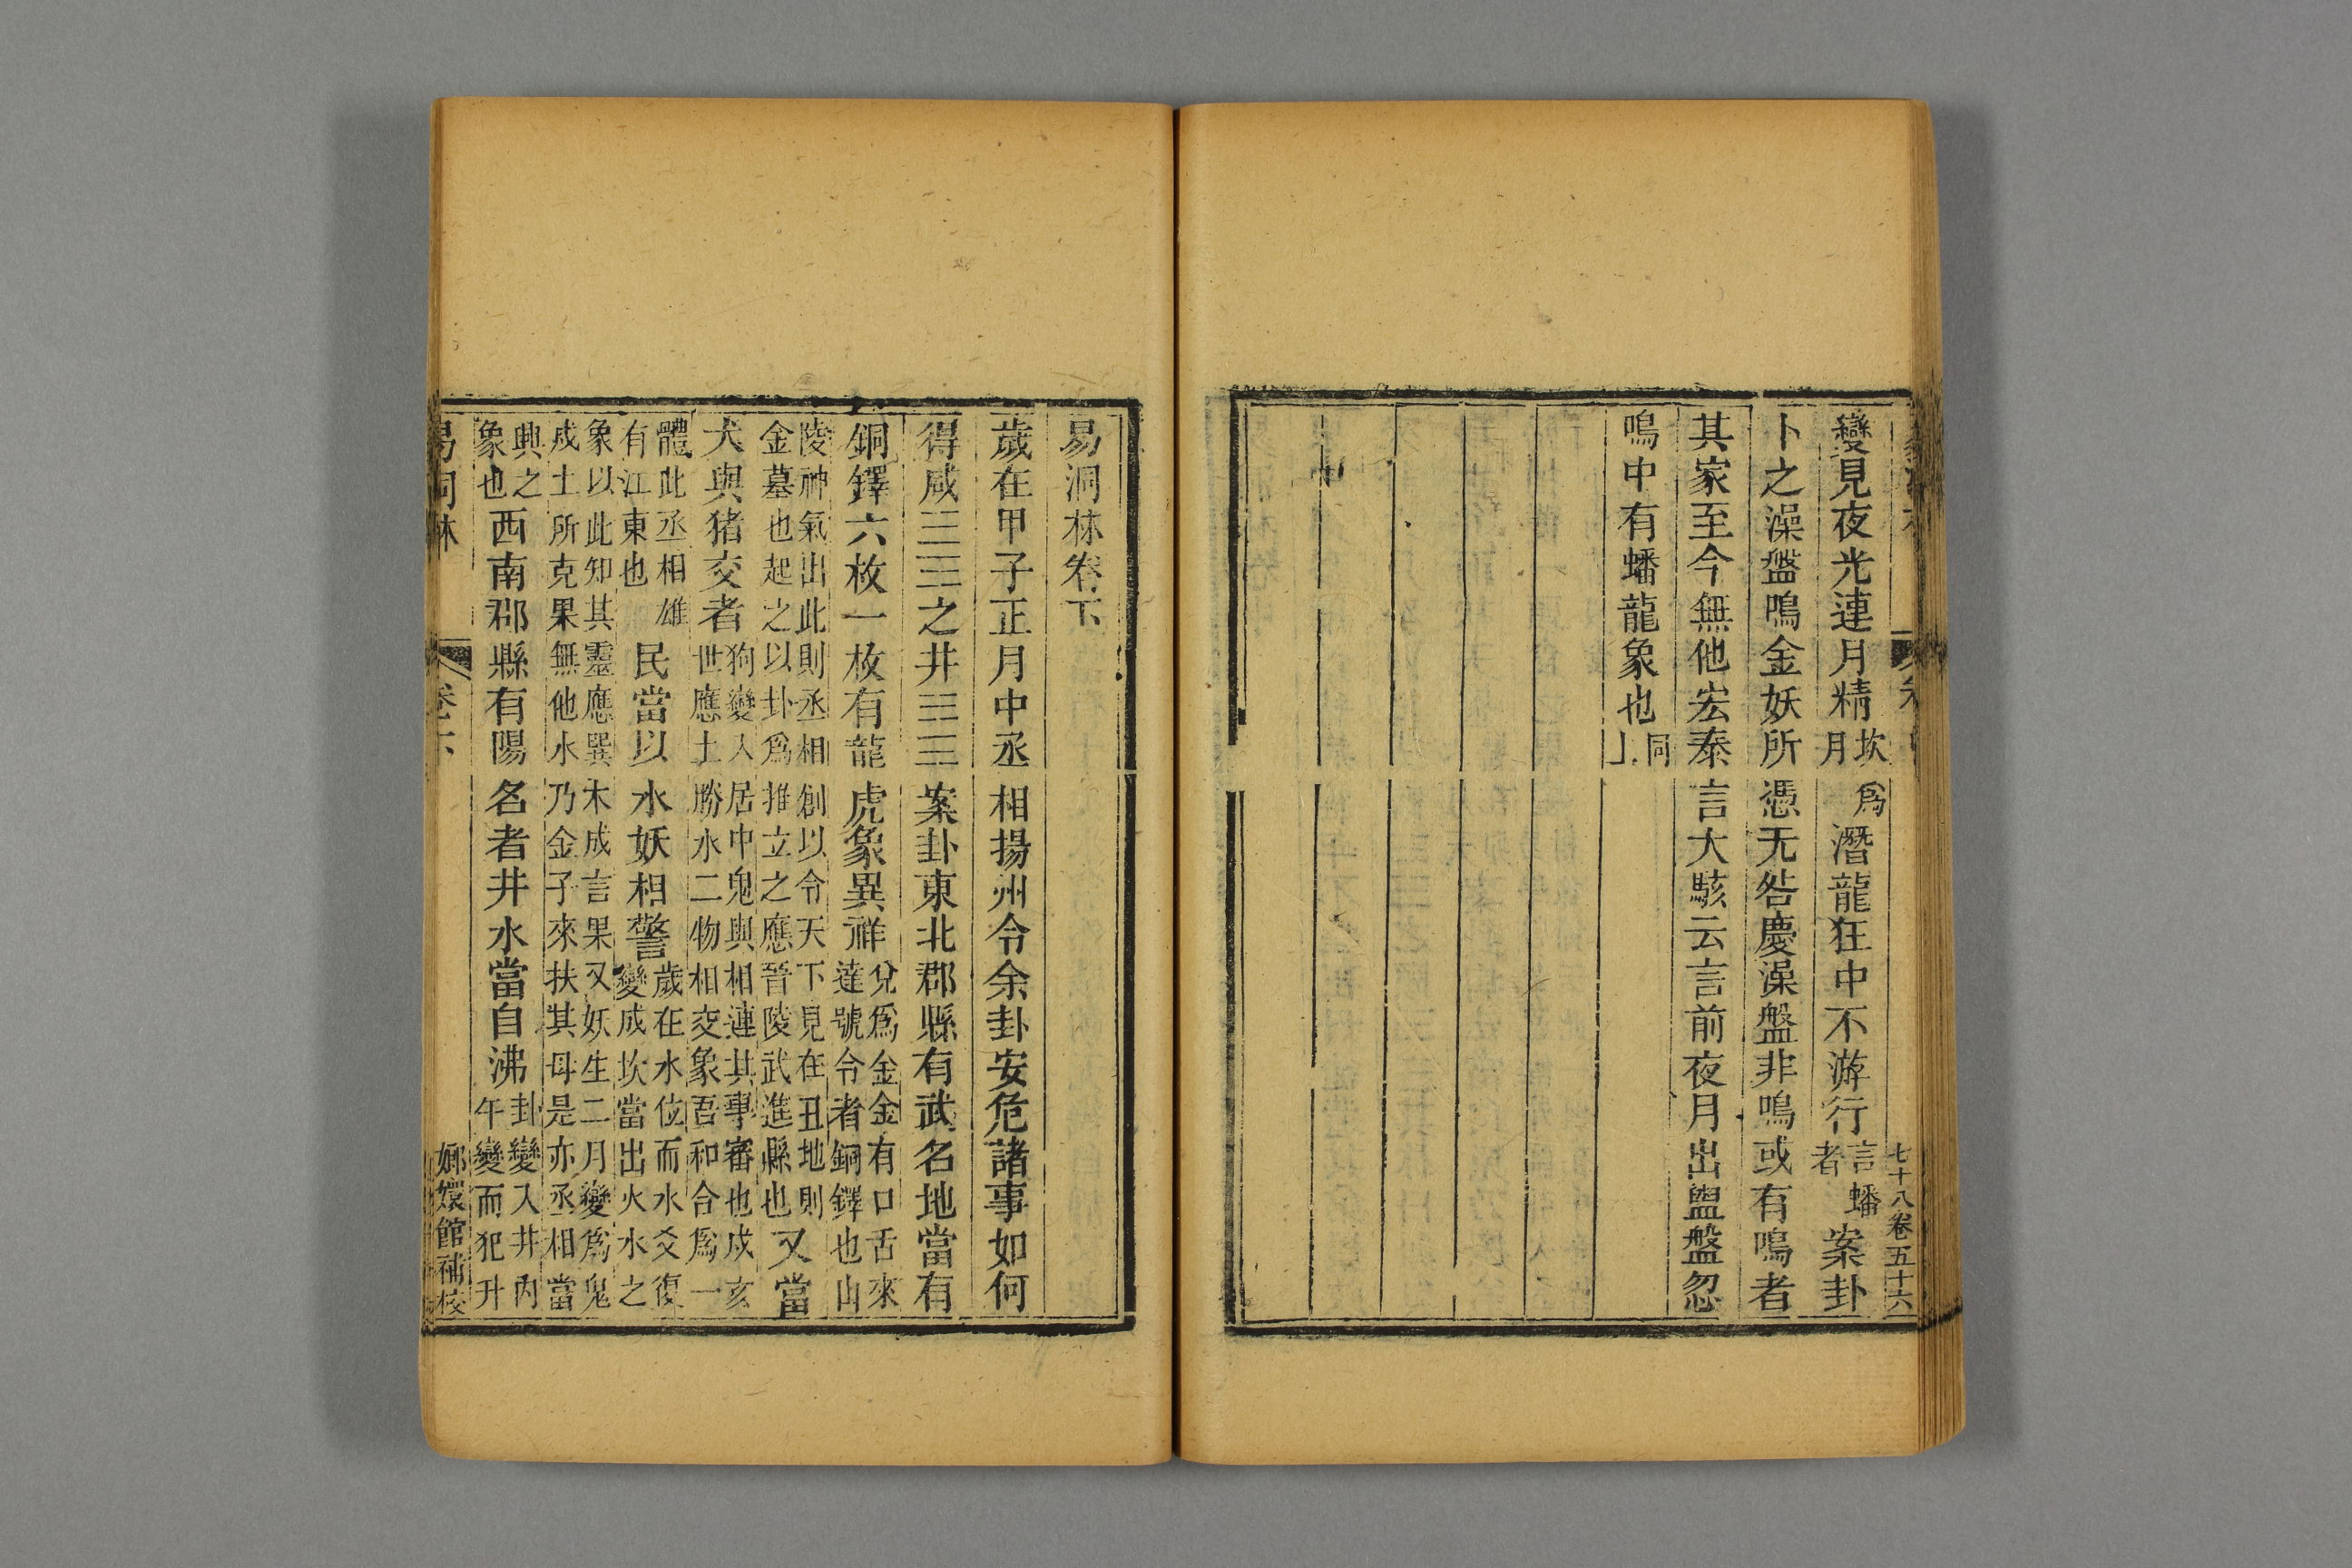 七十八卷五十六
變見夜光連月精坎為月潛龍狂中不游行言蟠者案卦
卜之澡盤鳴金妖所憑无咎慶澡盤非鳴或有鳴者
其家至今無他宏泰言大駭云言前夜月出盥盤忽
鳴中有蟠龍象也同上
易洞林卷下
歲在甲子正月中丞相揚州令余卦安危諸事如何
得咸之井案卦東北郡縣有武名地當有
銅鐸六枚一枚有龍虎象異祥兌為金金有口舌來達號令者銅鐸也山
陵神氣出此則丞相創以令天下見在丑地則金墓也起之以卦為推立之應晉陵武進縣也又當
犬與猪交者狗變入居中鬼與相連其事審也戌亥世應土勝水二物相交象吾和合為一
體此丞相雄有江東也民當以水妖相警歲在水位而水爻復變成坎當出火水之
象以此知其靈應巽木成言果又妖生二月變為鬼戍土所克果無他水乃金子來扶其母是亦丞相當
興之象也西南郡縣有陽名者井水當自沸卦變入井內午變而犯升
易洞林 卷下 嫏嬛館補校